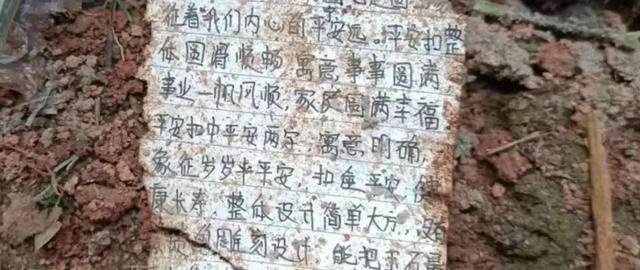 征着我们内心的平安远。平安扣整
体圆滑顺畅,寓意,事事圆满
事业一帆风顺,家庭圆满幸福
平安扣中平安两字,寓意明确,
象征岁岁平平安,扣住平安,健
康长寿,整体设计简单大方,
雕刻设计,能把玉石最